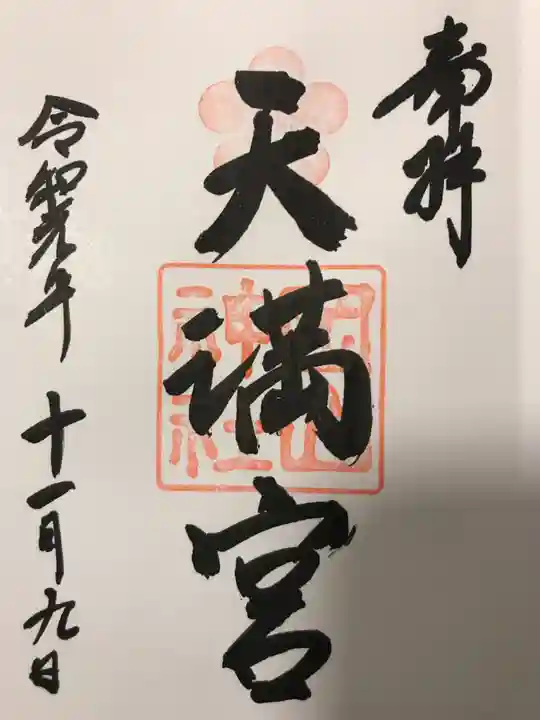 奉拝
天満宮
令和元年 十一月九日